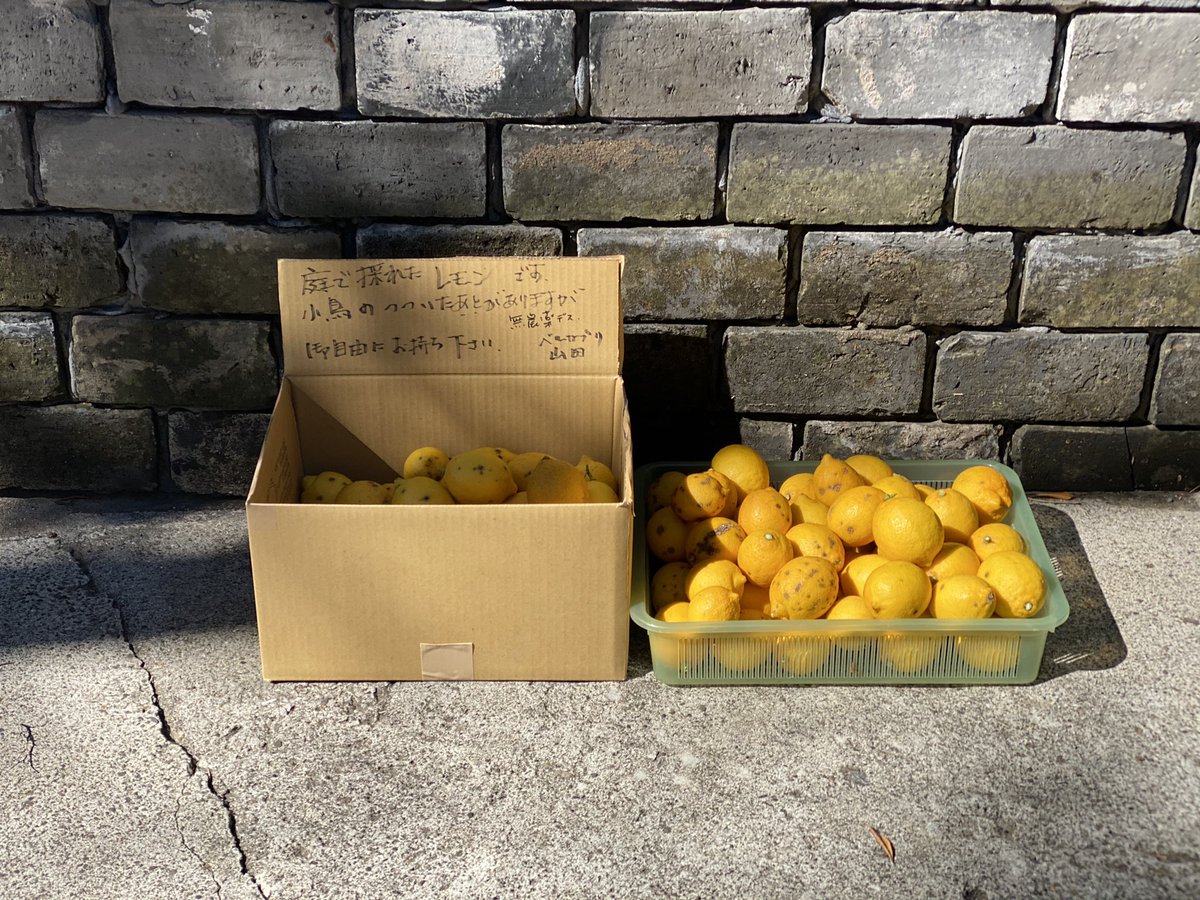 庭で採れた レモン です.
小鳥のつついたあとがありますが
無農薬デス.
御自由にお持ち下さい.
山田